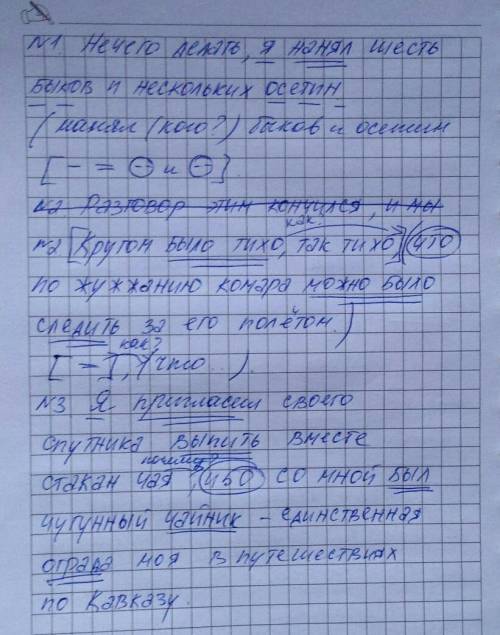 №1. Нечего делать, я нанял шесть
быков и нескольких осетин
(нанял (кого?) быков и осетин
[ - = ⊖ и ⊖ ].
№2 Разговор этим кончился, и мы
как?
№2 [Кругом было тихо, так тихо], (что
по жужжанию комара можно было
следить за его полётом.)
как?
[ = ], (что ...).
№3 Я пригласил своего
спутника выпить вместе
почему?
стакан чая, ибо со мной был
чугунный чайник - единственная
отрада моя в путешествиях
по Кавказу.